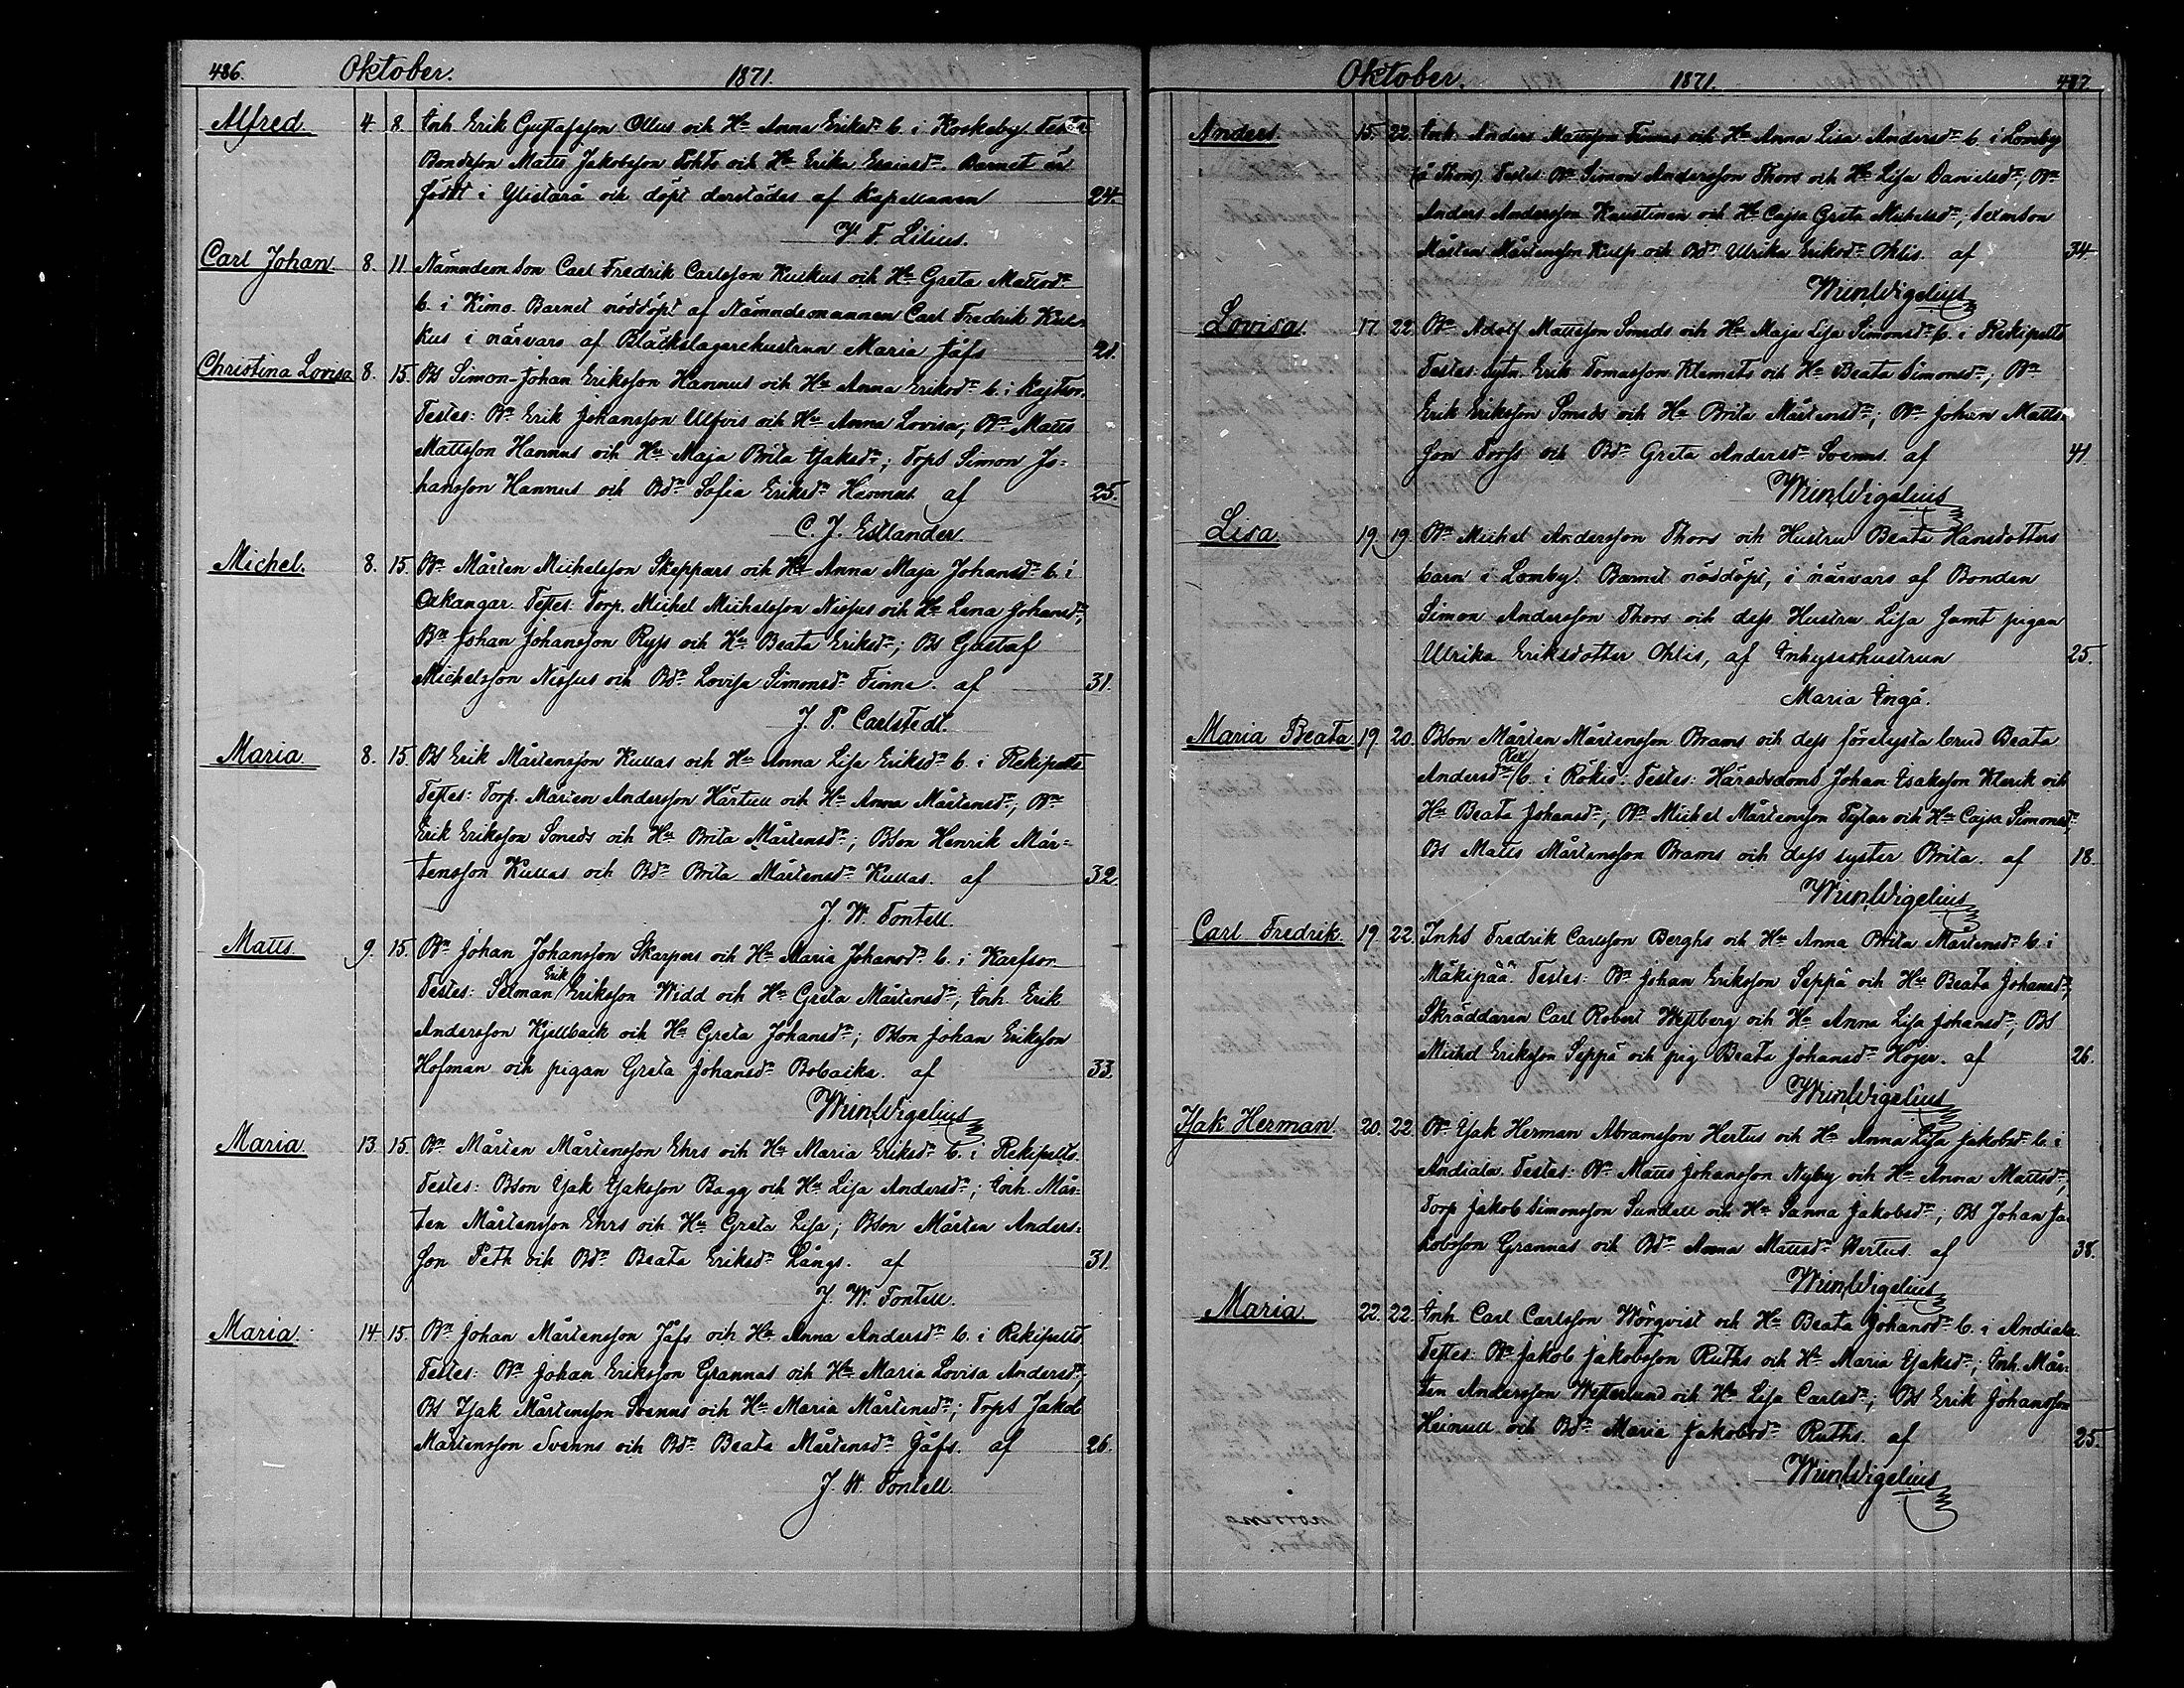 486. Oktober. 1871.
Alfred 4 8 Inh. Erik Gustafsson Ollus och Hu Anna Eriksdr b. i Koskeby Testes
Bondeson Matts Jakobsson Fokts och Hu Erika Esaiasdr. Barnet är
född i Ylistarå och döpt derstädes af Kapellanen 24.
J. F. Lilius.
Carl Johan 8. 11 Nämndem. Son Carl Fredrik Carlsson Kuckus och Hu Greta Mattsdr
b. i Kimo. Barnet nöddöpt af Nämndemannen Carl Fredrik Kuc-
kus i närvaro af Bläckslagarehustrun Maria Jåfs 21.
Christina Lovisa 8. 15. Bs Simon-Johan Eriksson Hannus och Hu Anna Eriksdr b. i Kaitsor.
Testes: Bn Erik Johansson Ulfvis och Hu Anna Lovisa; Bn Matts
Mattsson Hannus och Hu Maja Brita Isaksdr; Torps Simon Jo-
hansson Hannus och Bdr Sofia Eriksdr Hannus af 25.
C. J. Estlander
Michel. 8. 15. Bn Mårten Michelsson Skeppars och Hu Anna Maja Johansdr b. i
Oxkangar. Testes: Torp. Michel Michelsson Nissus och Hu Lena Johansdr;
Bn Johan Johansson Ryss och Hu Beata Eriksdr; Bs Gustaf
Michelsson Nissus och Bdr Lovisa Simonsdr Finne. af 31.
J. P. Carlstedt.
Maria 8. 15. Bs Erik Mårtensson Kullas och Hu Anna Lisa Eriksdr b. i Rekipelto
Testes: Torp. Mårten Andersson Härtull och Hu Anna Mårtensdr; Bn
Erik Eriksson Smeds och Hu Brita Mårtensdr; Bson Henrik Mår-
tensson Kullas och Bdr Brita Mårtensdr Kullas. af 32
J. W. Fontell.
Matts 9. 15. Bn Johan Johansson Skarpers och Hu Maria Johansdr b. i Karfsor
Testes: Selman Erik Eriksson Widd och Hu Greta Mårtensdr; Inh. Erik
Andersson Kjellback och Hu Greta Johansdr; Bson Johan Eriksson
Hofman och pigan Greta Johansdr Bobacka. af 33.
Wm Wigelius
Maria 13 15. Bn Mårten Mårtensson Ehrs och Hu Maria Eriksdr b. i Rekipelto.
Testes: Bson Isak Isaksson Bagg och Hu Lisa Andersdr; Inh. Mår-
ten Mårtensson Ehrs och Hu Greta Lisa; Bson Mårten Anders-
son Peth och Bdr Beata Eriksdr Långs. af 31.
J. W. Fontell.
Maria. 14 15. Bn Johan Mårtensson Jåfs och Hu Anna Andersdr b. i Rekipelto
Testes: Bn Johan Eriksson Grannas och Hu Maria Lovisa Andersdr
Bs Isak Mårtensson Svenns och Hu Maria Mårtensdr; Torps Jakob
Mårtensson Svenns och Bdr Beata Mårtensdr Jåfs. af 26.
J. W. Fontell.
Oktober. 1871. 487.
Anders. 15. 22. Inh. Anders Mattsson Finnas och Hu Anna Lisa Andersdr b. i Lomby
(å Thors) Testes: Bn Simon Andersson Thors och Hu Lisa Danielsdr; Bn
Anders Andersson Kaustinen och Hu Cajsa Greta Michelsdr; Sexmson
Mårten Mårtensson Kulp och Bdr Ulrika Eriksdr Ohlis. af 34.
Wm Wigelius
Lovisa 17. 22. Bn Adolf Mattsson Smeds och Hu Maja Lisa Simonsdr b. i Rekipelto
Testes: Erik Tomasson Klemets och Hu Beata Simonsdr; Bn
Erik Eriksson Smeds och Hu Brita Mårtensdr; Bn Johan Matts-
son Torfs och Bdr Greta Andersdr Svenns. af 41.
Wm Wigelius
Lisa 19 19. Bn Michel Andersson Thors och Hustru Beata Hansdotters
barn i Lomby. Barnet nöddöpt, i närvaro af Bonden
Simon Andersson Thors och dess Hustru Lisa samt pigan
Ulrika Eriksdotter Ohlis, af Inhyseshustrun 25.
Maria Ingå.
Maria Beata 19. 20. Bson Mårten Mårtensson Brams och dess förelysta brud Beata
Andersdr b. i Rökiö. Testes: Häradsdomb Johan Isaksson Klerik och
Hu Beata Johansdr; Bn Michel Mårtensson Tytar och Hu Cajsa Simonsdr;
Bs Matts Mårtensson Brams och dess syster Brita. af 18.
Wm Wigelius
Carl Fredrik. 19. 22. Inhs Fredrik Carlsson Berghs och Hu Anna Brita Mårtensdr b. i
Mäkipää. Testes: Bn Johan Eriksson Seppä och Hu Beata Johansdr;
Skräddaren Carl Robert Westberg och Hu Anna Lisa Johansdr; Bs
Michel Eriksson Seppä och pig. Beata Johansdr Hojer. af 26.
Wm Wigelius
Isak Herman 20. 22. Bn Isak Herman Abramsson Hertus och Hu Anna Lisa Jakobsdr b. i
Andiala. Testes: Bn Matts Johansson Nyby och Hu Anna Mattsdr;
Torp Jakob Simonsson Sundell och Hu Sanna Jakobsdr; Bs Johan Ja-
kobsson Grannas och Bdr Anna Mattsdr Hertus. af 38.
Wm Wigelius
Maria 22. 22. Inh. Carl Carlsson Wörqvist och Hu Beata Johansdr b. i Andiala.
Testes: Bn Jakob Jakobsson Ruths och Hu Maria Isaksdr; Inh. Mår-
ten Andersson Westerlund och Hu Lisa Carlsdr; Bs Erik Johansson
Heinull och Bdr Maria Jakobsdr Ruths. af 25.
Wm Wigelius